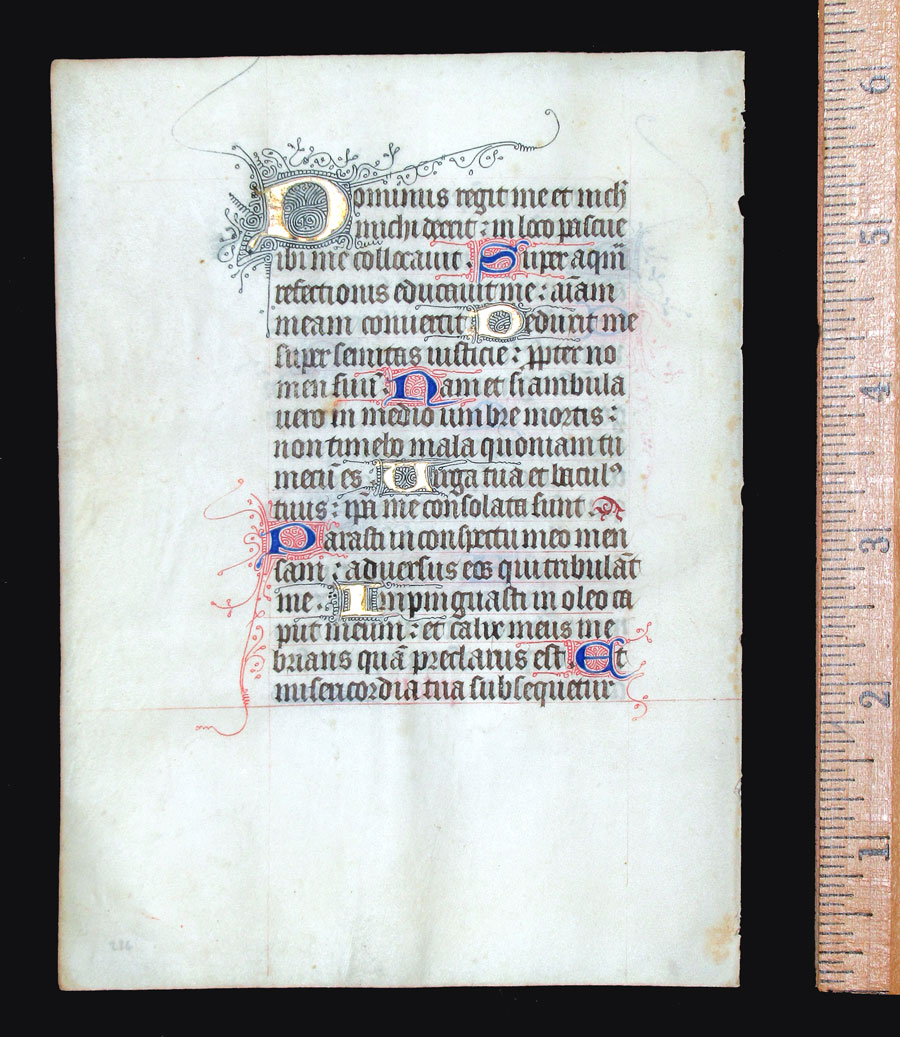 Dominus regit me et nich̾
michi deerit : in loco pascue
ibi me collocauit . Super aquā
refectionis educauit me : aīam
meam conuertit Deduxit me
super semitas iusticie : ꝓpter no
men suū . Nam et si ambula
uero in medio umbre mortis :
non timebo mala quoniam tu
mecū es . Uirga tua et baculꝰ
tuus : ip̄a me consolata sunt .
Parasti in conspectu meo men
sam : aduersus eos qui tribulāt
me . Impinguasti in oleo ca
put meum : et calix meus ine
brians quā preclarus est Et
misericordia tua subsequetur
6
5
4
3
2
1